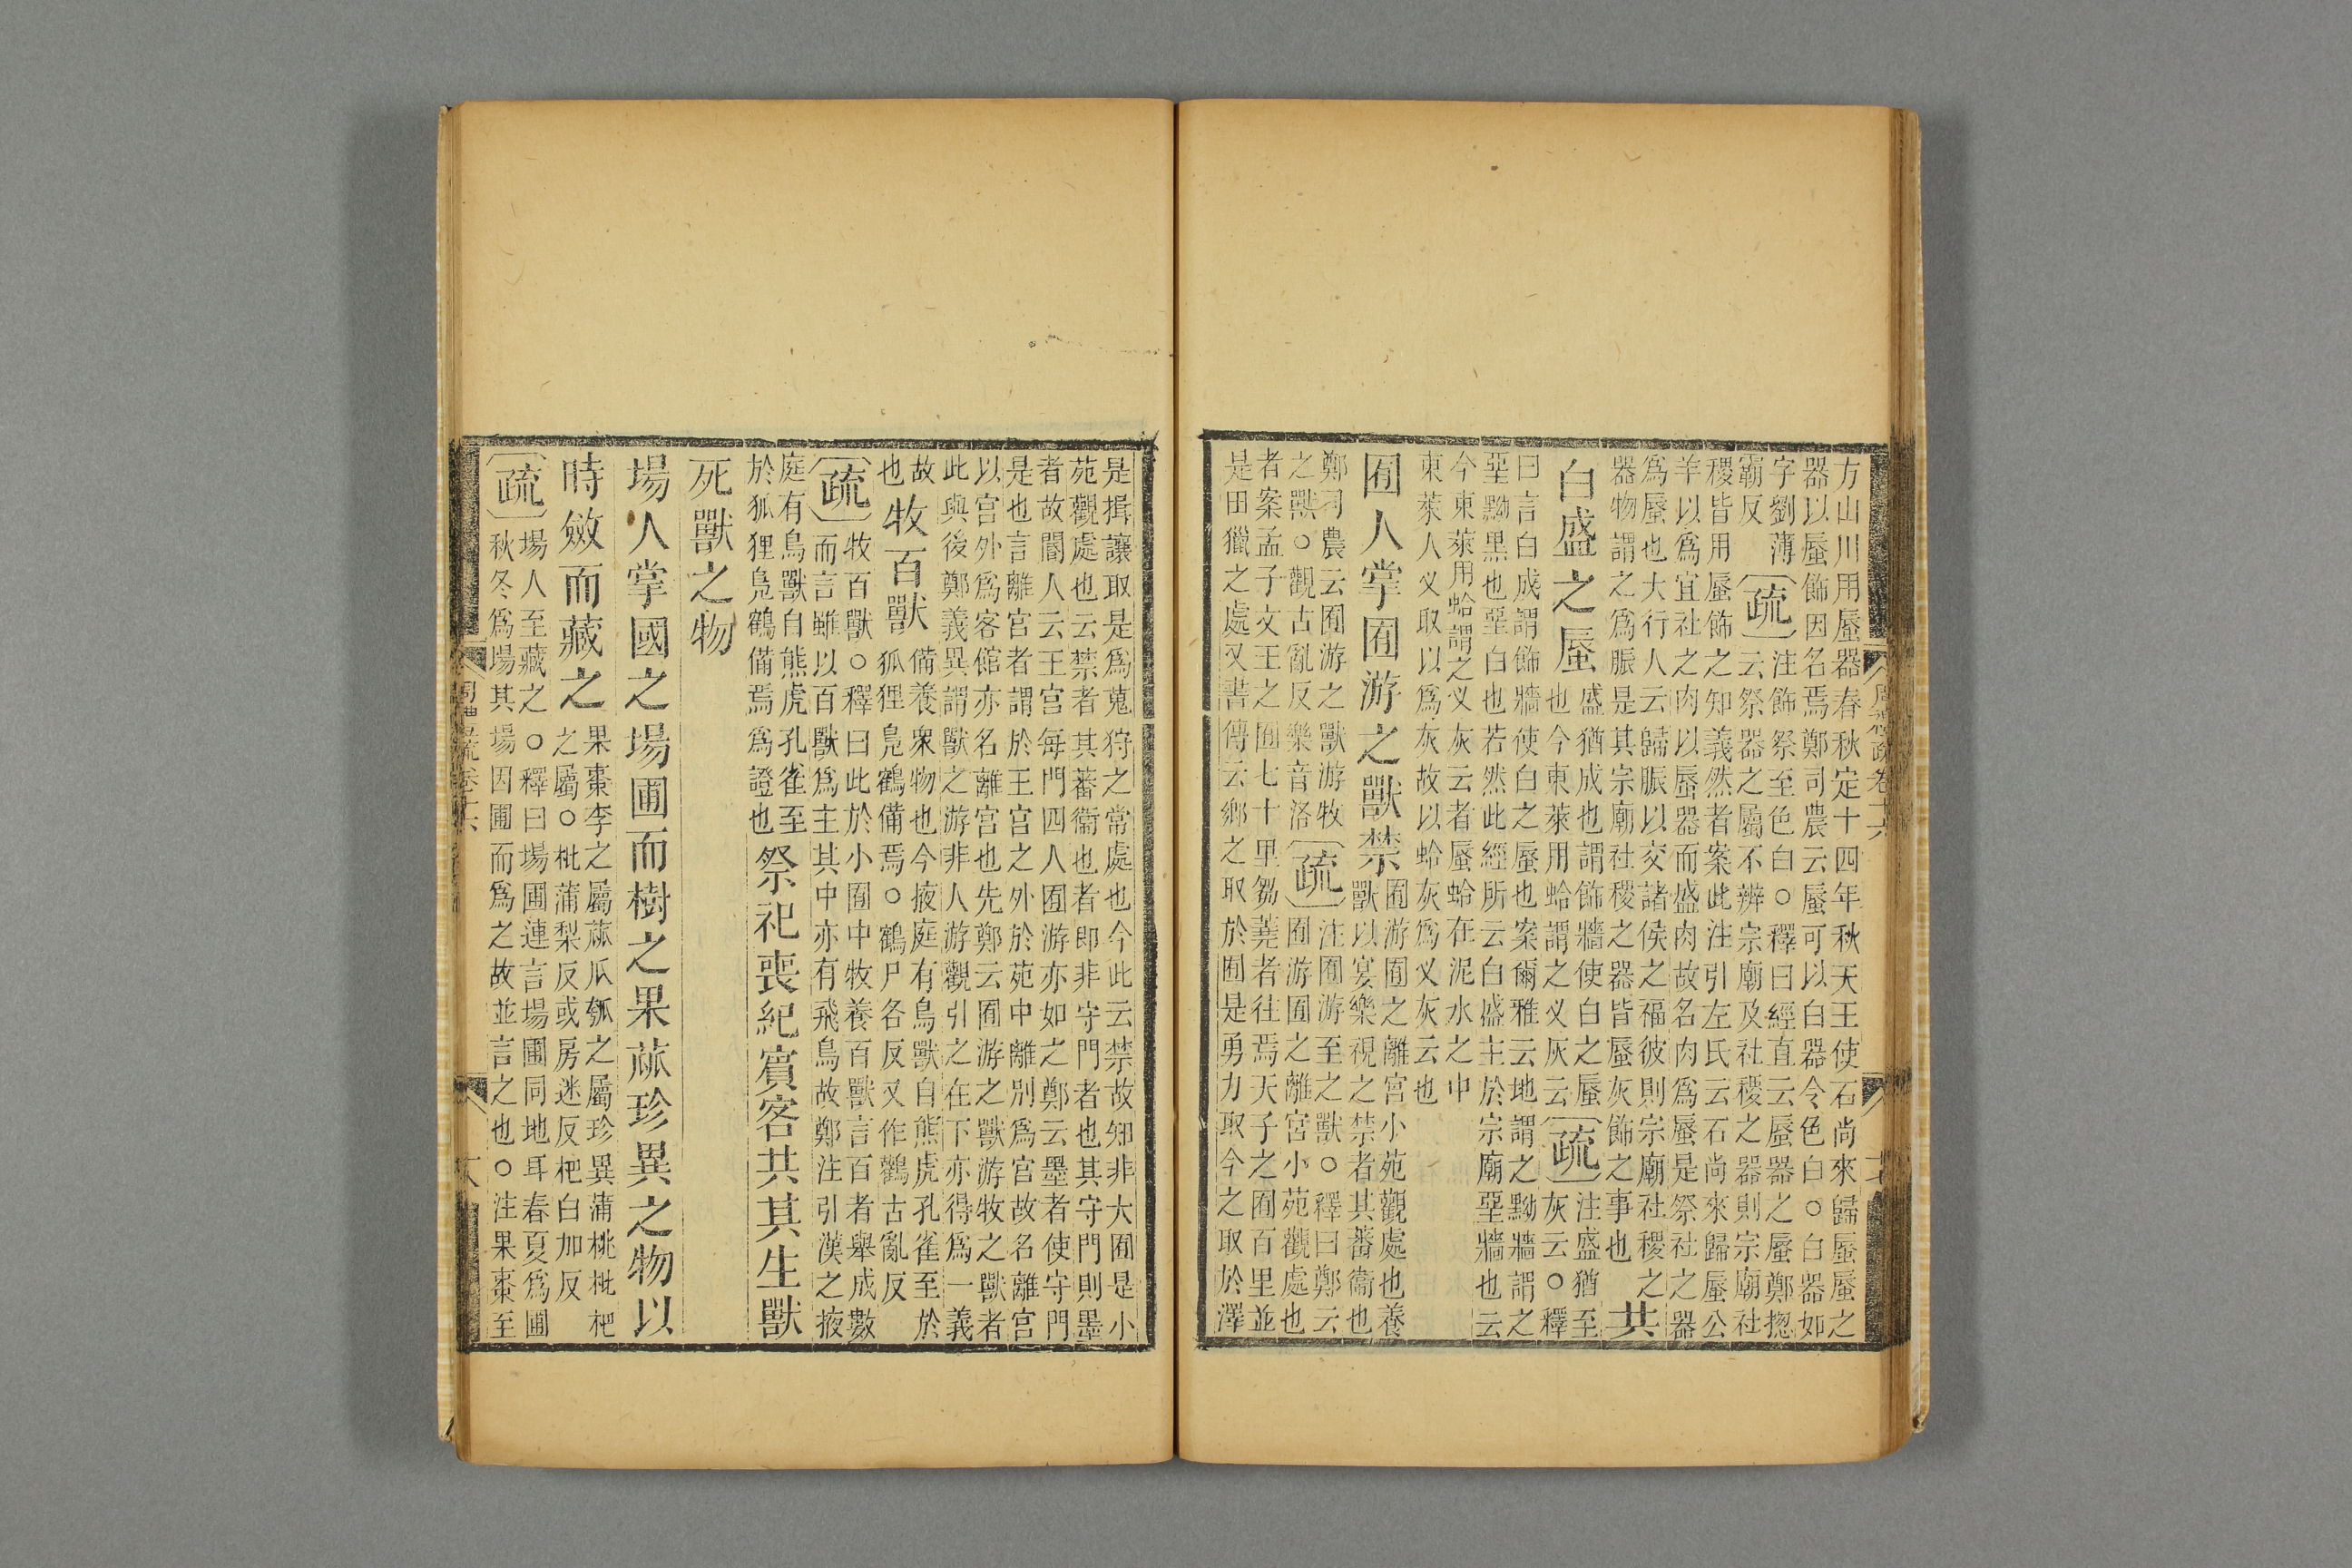 方山川用蜃器春秋定十四年秋天王使石尚來歸蜃蜃之
器以蜃飾因名焉鄭司農云蜃可以白器令色白○白器如
字劉薄
霸反
疏
注飾祭至色白○釋曰經直云蜃器之蜃鄭揔
云祭器之屬不辨宗廟及社稷之器則宗廟社
稷皆用蜃飾之知義然者案此注引左氏云石尚來歸蜃公
羊以爲宜社之肉以蜃器而盛肉故名肉爲蜃是祭社之器
爲蜃也大行人云歸脤以交諸侯之福彼則宗廟社稷之
器物謂之爲脤是其宗廟社稷之器皆蜃灰飾之事也
共
白盛之蜃
盛猶成也謂飾牆使白之蜃
也今東萊用蛤謂之义灰云
疏
注盛猶至
灰云○釋
曰言白成謂飾牆使白之蜃也案爾雅云地謂之黝牆謂之
堊黝黑也堊白也若然此經所云白盛主於宗廟堊牆也云
今東萊用蛤謂之义灰云者蜃蛤在泥水之中
東萊人义取以爲灰故以蛤灰爲义灰云也
囿人掌囿游之獸禁
囿游囿之離宮小苑觀處也養
獸以宴樂視之禁者其蕃衞也
鄭司農云囿游之獸游牧
之獸○觀古亂反樂音洛
疏
注囿游至之獸○釋曰鄭云
囿游囿之離宮小苑觀處也
者案孟子文王之囿七十里芻蕘者往焉天子之囿百里並
是田獵之處又書傳云鄉之取於囿是勇力取今之取於澤
周禮疏卷十六
是揖讓取是爲蒐狩之常處也今此云禁故知非大囿是小
苑觀處也云禁者其蕃衞也者即非守門者也其守門則墨
者故閽人云王宮每門四人囿游亦如之鄭云墨者使守門
是也言離宮者謂於王宮之外於苑中離別爲宮故名離宮
以宮外爲客館亦名離宮也先鄭云囿游之獸游牧之獸者
此與後鄭義異謂獸之游非人游觀引之在下亦得爲一義
故
也
牧百獸
備養衆物也今掖庭有鳥獸自熊虎孔雀至於
狐狸鳧鶴備焉○鶴尸各反又作鸛古亂反
疏
牧百獸○釋曰此於小囿中牧養百獸言百者舉成數
而言雖以百獸爲主其中亦有飛鳥故鄭注引漢之掖
庭有鳥獸自熊虎孔雀至
於狐狸鳧鶴備焉爲證也
祭祀喪紀賓客共其生獸
死獸之物
場人掌國之場圃而樹之果蓏珍異之物以
時斂而藏之
果棗李之屬蓏瓜瓠之屬珍異蒲桃枇杷
之屬○枇蒲梨反或房迷反杷白加反
疏
場人至藏之○釋曰場圃連言場圃同地耳春夏爲圃
秋冬爲場其場因圃而爲之故並言之也○注果棗至